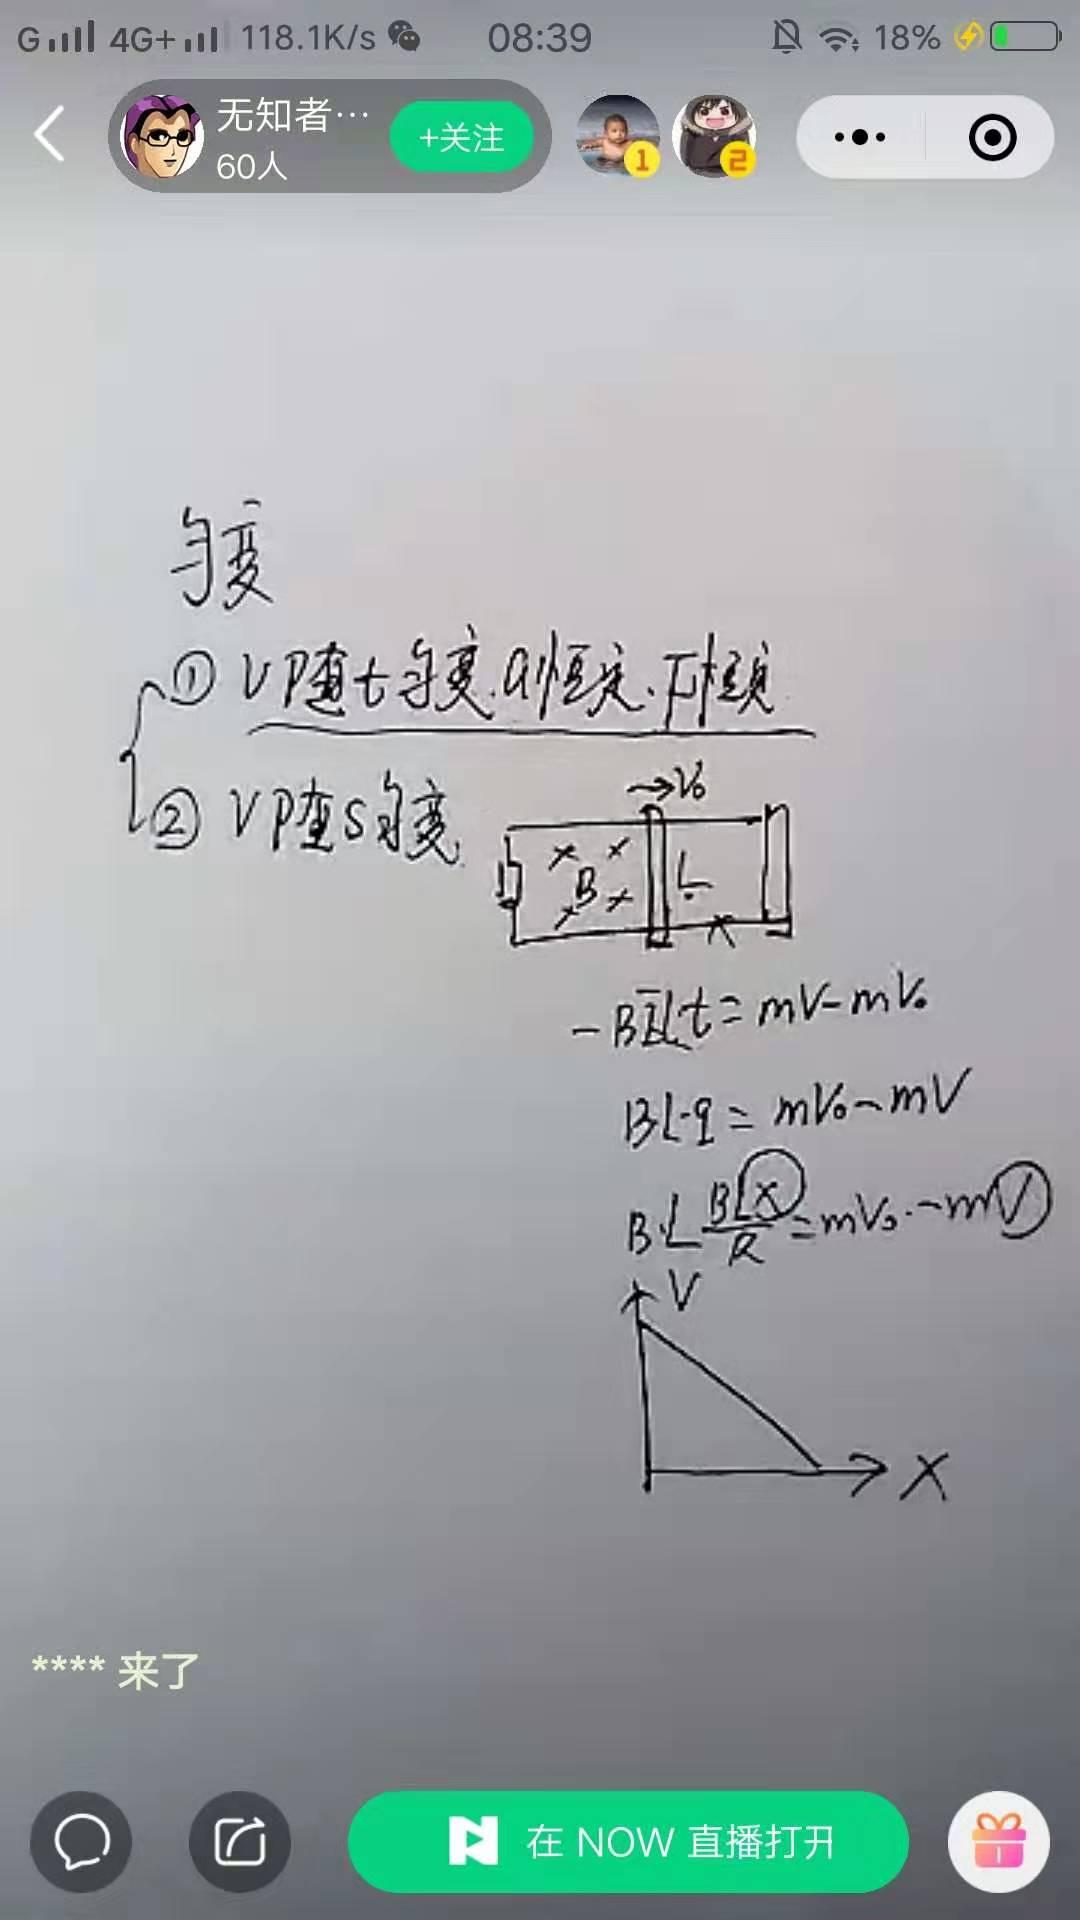 G 4G+ 118.1K/s 08:39 18%
无知者… +关注
60人
1 2
匀变
① V随t匀变.a恒定、F恒定
② V随s匀变
→V₀
B L
x
-BĪLt=mV-mV₀
BL·q=mV₀-mV
B·L BLX/R=mV₀-mV
V
X
**** 来了
在 NOW 直播打开